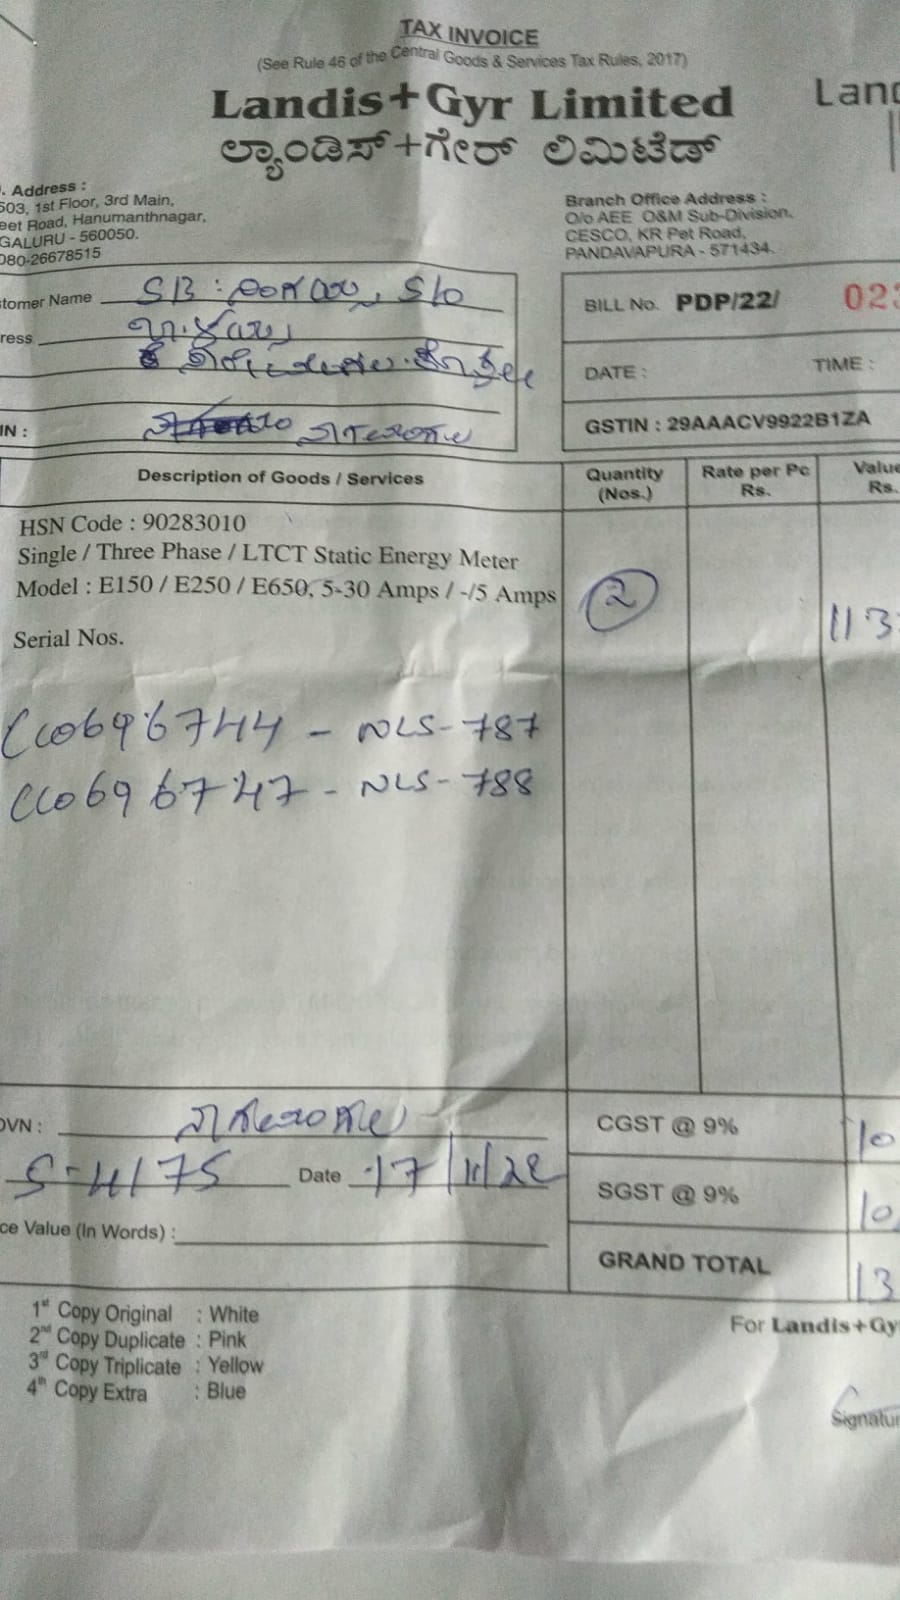 TAX INVOICE
(See Rule 46 of the Central Goods & Services Tax Rules, 2017)
Landis+Gyr Limited
Land
ಲ್ಯಾಂಡಿಸ್+ಗೇರ್ ಲಿಮಿಟೆಡ್
. Address :
503, 1st Floor, 3rd Main,
eet Road, Hanumanthnagar,
GALURU - 560050.
080-26678515
Branch Office Address :
O/o AEE O&M Sub-Division,
CESCO, KR Pet Road,
PANDAVAPURA - 571434.
tomer Name SB : S/o
ress
IN :
BILL No. PDP/22/ 023
DATE : TIME :
GSTIN : 29AAACV9922B1ZA
Description of Goods / Services
Quantity (Nos.)
Rate per Pc Rs.
Value Rs.
HSN Code : 90283010
Single / Three Phase / LTCT Static Energy Meter
Model : E150 / E250 / E650, 5-30 Amps / -/5 Amps
2
113
Serial Nos.
6744 - NLS-787
6747 - NLS-788
OVN :
CGST @ 9% 10
S-4175 Date 17/11/22
SGST @ 9% 10
ce Value (In Words) :
GRAND TOTAL 13
1st Copy Original : White
2nd Copy Duplicate : Pink
3rd Copy Triplicate : Yellow
4th Copy Extra : Blue
For Landis+Gy
Signatur